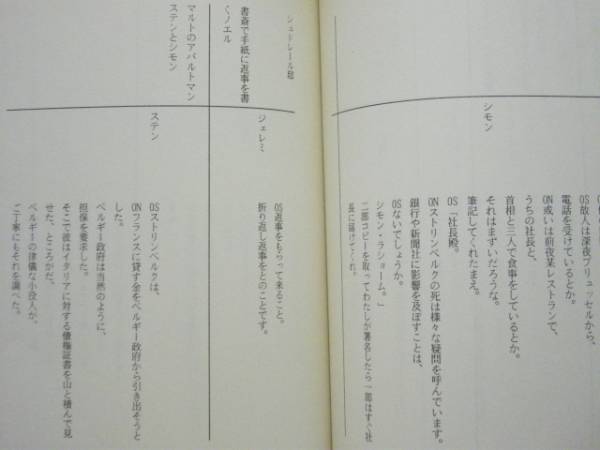 シモン
OS故人は深夜ブリュッセルから、
電話を受けているとか。
ON或いは前夜某レストランで、
うちの社長と、
首相と三人で食事をしているとか。
それはまずいだろうな。
筆記してくれたまえ。
OS「社長殿。
ONストリンベルクの死は様々な疑問を呼んでいます。
銀行や新聞社に影響を及ぼすことは、
OSないでしょうか。
シモン・ラショーム。」
二部コピーを取ってわたしが署名したら一部はすぐ社
長に届けてくれ。
シュドレール邸
書斎で手紙に返事を書
くノエル
ジェレミ
OS返事をもらって来ること。
折り返し返事をとのことです。
マルトのアパルトマン
ステンとシモン
ステン
OSストリンベルクは、
ONフランスに貸す金をベルギー政府から引き出そうと
した。
ベルギー政府は当然のように、
担保を要求した。
そこで彼はイタリアに対する債権証書を山と積んで見
せた、ところがだ、
ベルギーの律儀な小役人が、
ご丁寧にもそれを調べた。